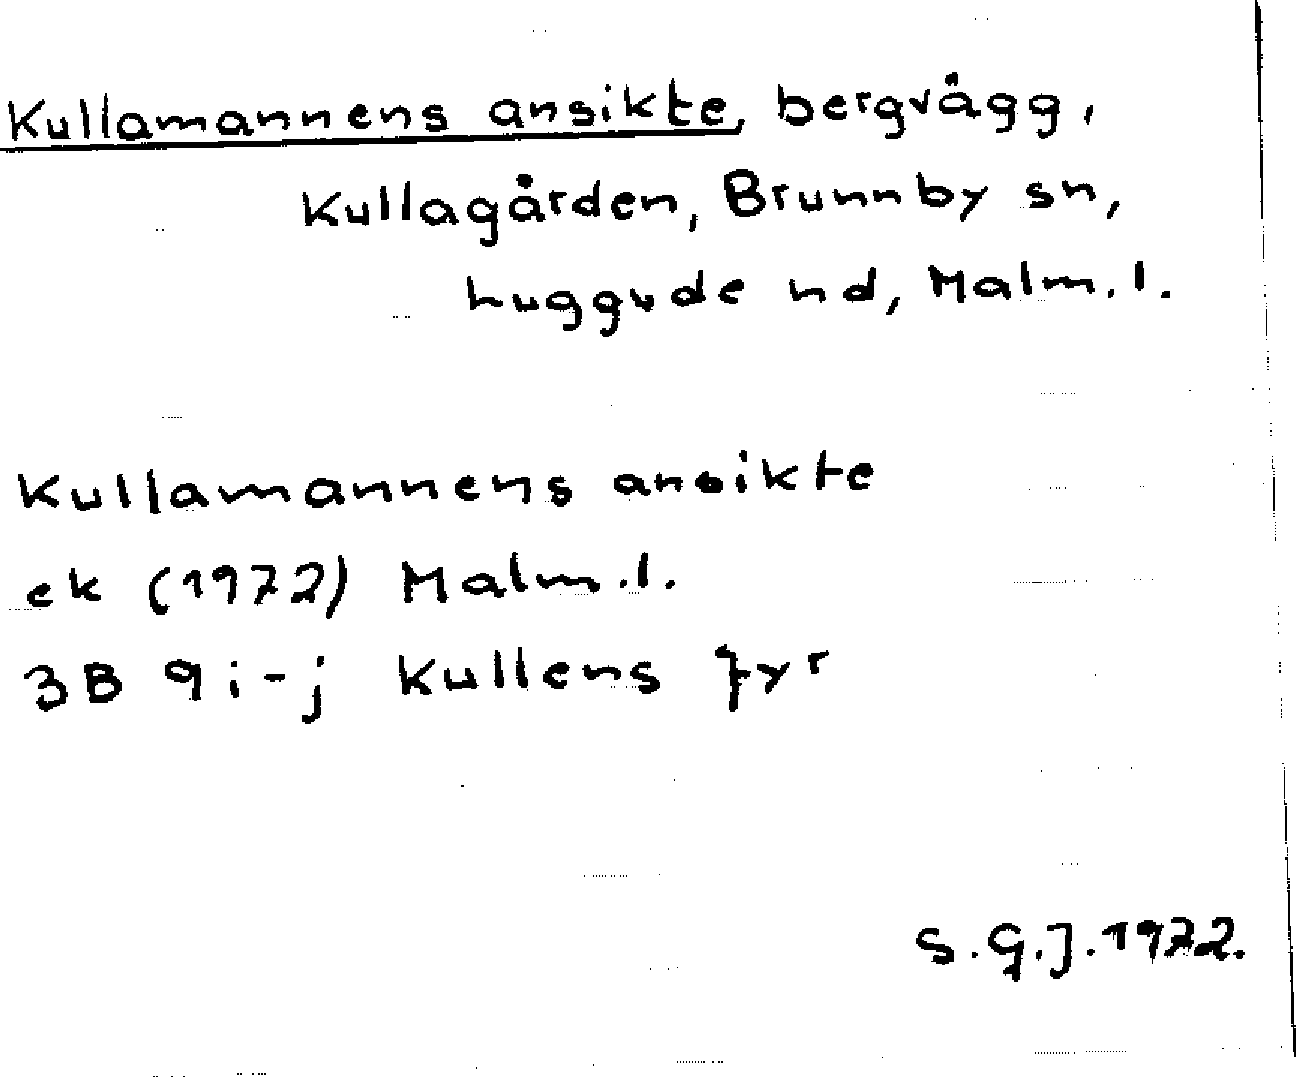 Kullamannens ansikte, bergvägg,
Kullagården, Brunnby sn,
Luggude hd, Malm.l.
Kullamannens ansikte
ek (1972) Malm.l.
3B 9i-j Kullens fyr
S.G.J.1972.